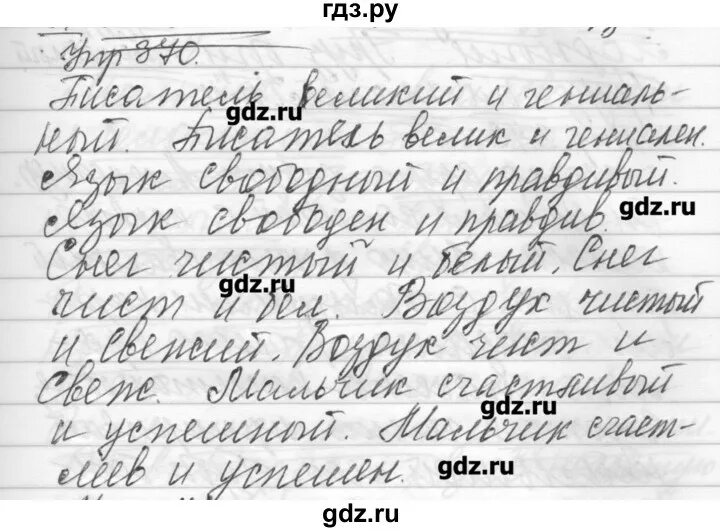 гдз.ру
Упр 370.
Писатель великий и гениаль-
gdz.ru
ный. Писатель велик и гениален.
Язык свободный и правдивый.
gdz.ru
Язык свободен и правдив.
Снег чистый и белый. Снег
gdz.ru
чист и бел. Воздух чистый
и свежий. Воздух чист и
свеж. Мальчик счастливый
gdz.ru
и успешный. Мальчик счаст-
лив и успешен.
gdz.ru
gdz.ru